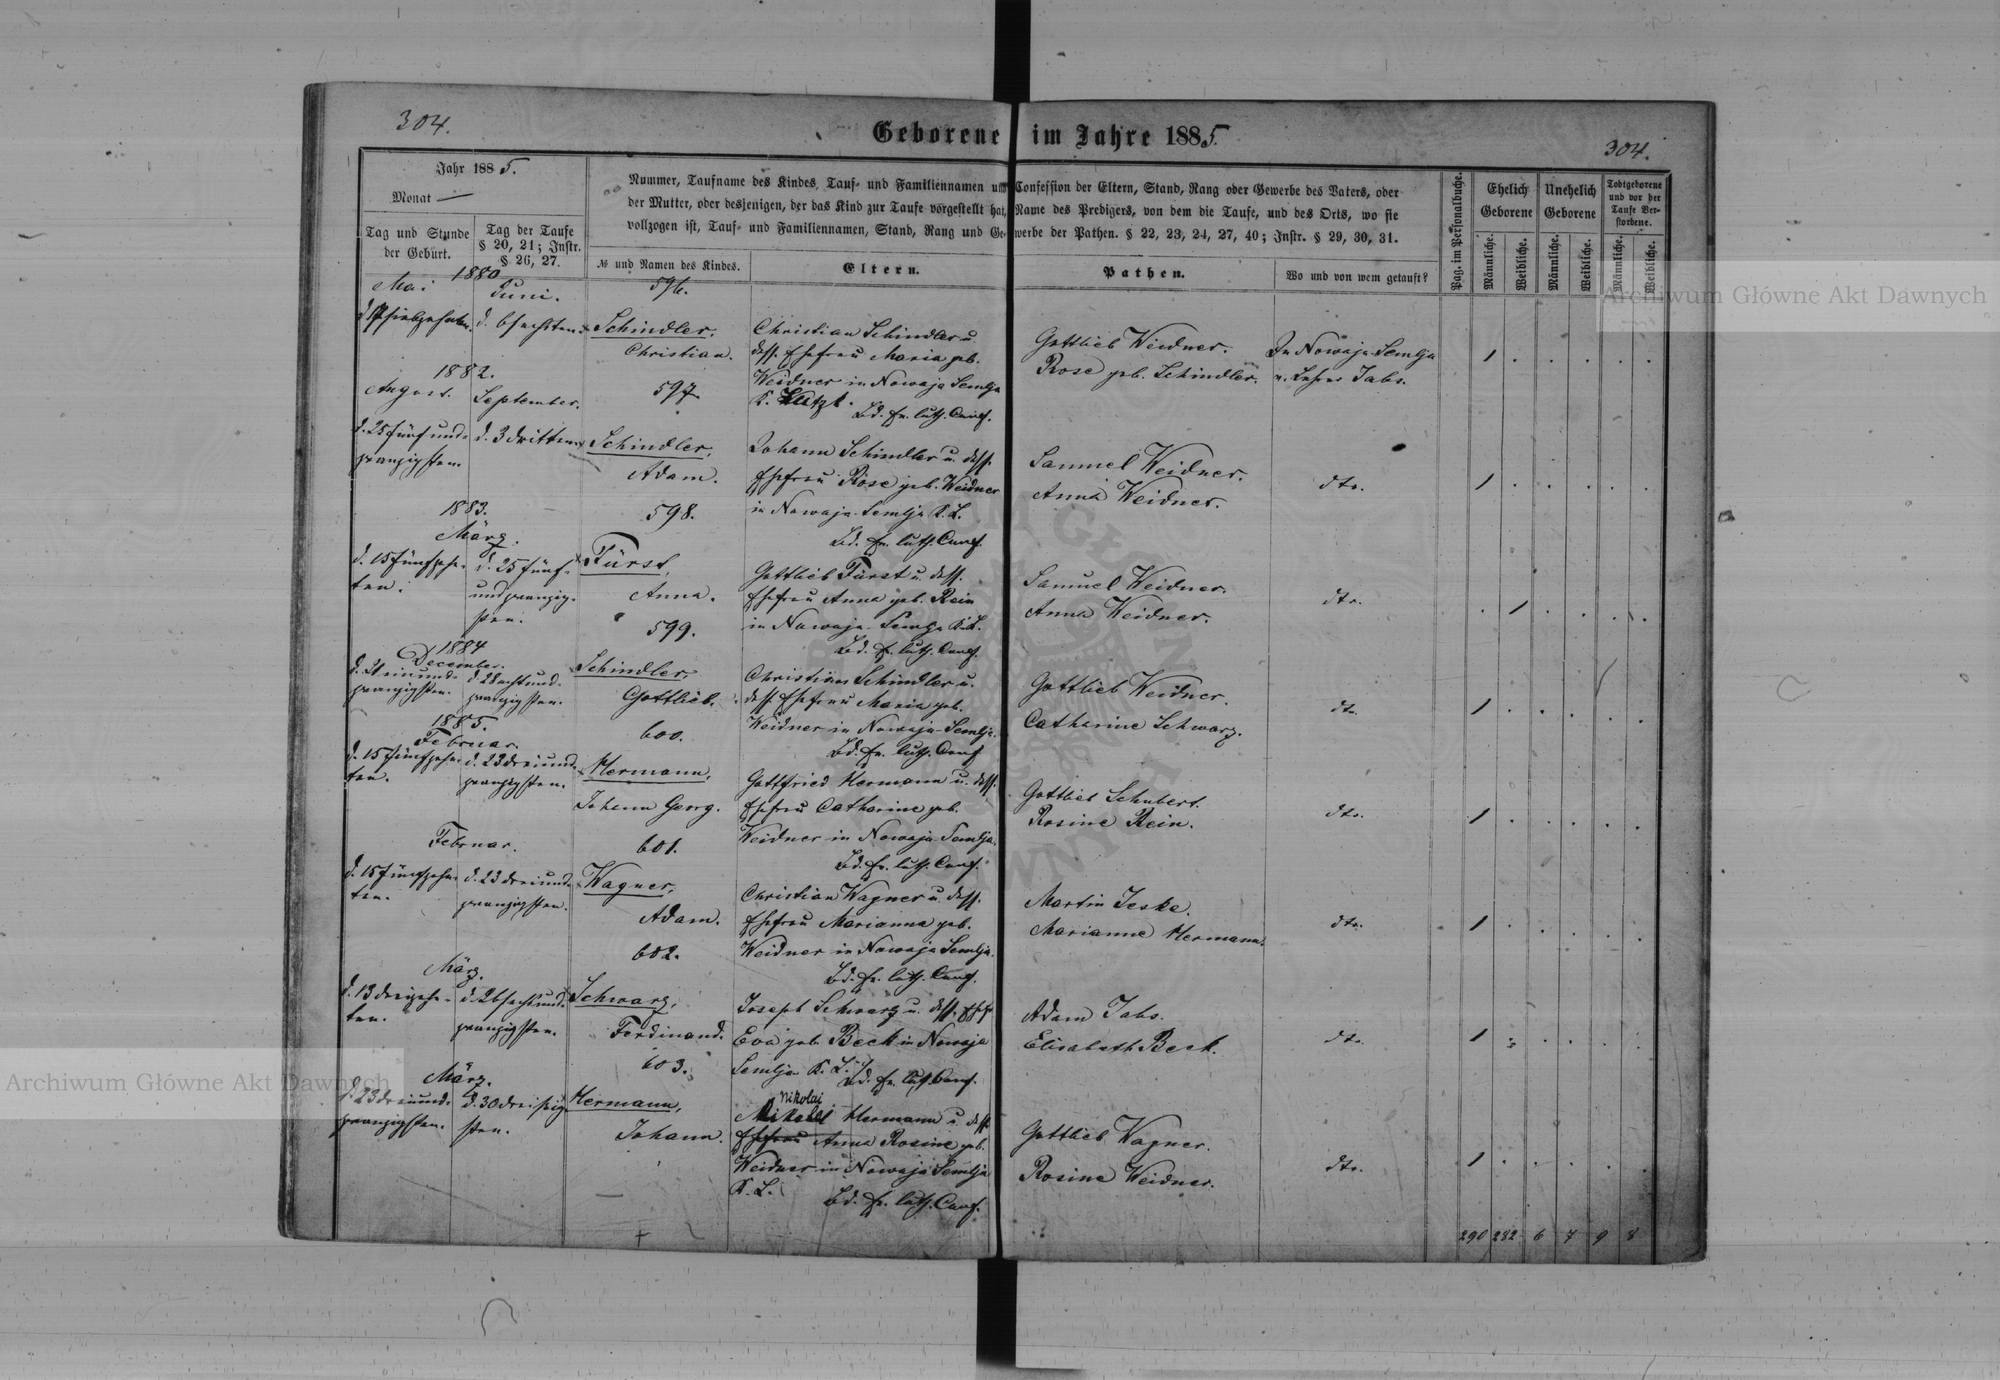 304.
Geborene im Jahre 1885.
304.
Jahr 1885.
Monat —
Tag und Stunde
der Geburt.
Tag der Taufe
§ 20, 21; Instr.
§ 26, 27.
Nummer, Taufname des Kindes, Tauf- und Familiennamen und Confession der Eltern, Stand, Rang oder Gewerbe des Vaters, oder
der Mutter, oder desjenigen, der das Kind zur Taufe vorgestellt hat, Name des Predigers, von dem die Taufe, und des Orts, wo sie
vollzogen ist, Tauf- und Familiennamen, Stand, Rang und Gewerbe der Pathen. § 22, 23, 24, 27, 40; Instr. § 29, 30, 31.
№ und Namen des Kindes.
Eltern.
Pathen.
Wo und von wem getauft?
Pag. im Personalbuche.
Ehelich
Geborene
Unehelich
Geborene
Todtgeborene
und vor der
Taufe Ver-
storbene.
Männliche.
Weibliche.
Männliche.
Weibliche.
Männliche.
Weibliche.
1880
Mai
Juni.
596.
d. 17 siebzehnten
d. 6 sechsten
Schindler,
Christian.
Christian Schindler u.
dess. Ehefrau Maria geb.
Weidner in Nowaja Semlja
K.
Bd. ev. luth. Conf.
Gottlieb Weidner.
Rose geb. Schindler.
In Nowaja Semlja
v. Lehrer Jabs.
1
1882.
August.
September.
597.
d. 25 fünfund-
zwanzigsten
d. 3 dritten
Schindler,
Adam.
Johann Schindler u. dess.
Ehefrau Rose geb. Weidner
in Nowaja Semlja K. L.
Bd. ev. luth. Conf.
Samuel Weidner.
Anna Weidner.
dto.
1
1883.
März.
598.
d. 15 fünfzehn-
ten.
d. 25 fünf-
undzwanzig-
sten.
Fürst,
Anna.
Gottlieb Fürst u. dess.
Ehefrau Anna geb. Rein
in Nowaja Semlja K. L.
Bd. ev. luth. Conf.
Samuel Weidner.
Anna Weidner.
dto.
1
1884
December.
599.
d. 21 einund-
zwanzigsten.
d. 28 achtund-
zwanzigsten.
Schindler
Gottlieb.
Christian Schindler u.
dess. Ehefrau Maria geb.
Weidner in Nowaja Semlja.
Bd. ev. luth. Conf
Gottlieb Weidner.
Catharine Schwarz.
dto.
1
1885.
Februar.
600.
d. 15 fünfzehn-
ten.
d. 23 dreiund-
zwanzigsten.
Hermann,
Johann Georg.
Gottfried Hermann u. dess.
Ehefrau Catharine geb.
Weidner in Nowaja Semlja.
Bd. ev. luth. Conf.
Gottlieb Schubert.
Rosine Rein.
dto.
1
Februar.
601.
d. 15 fünfzehn-
ten.
d. 23 dreiund-
zwanzigsten.
Wagner,
Adam.
Christian Wagner u. dess.
Ehefrau Marianna geb.
Weidner in Nowaja Semlja.
Bd. ev. luth. Conf.
Martin Jeske.
Marianne Hermann.
dto.
1
März.
602.
d. 13 dreizehn-
ten.
d. 26 sechsund-
zwanzigsten.
Schwarz,
Ferdinand.
Joseph Schwarz u. dess. Ehefr
Eva geb. Beck in Nowaja
Semlja K. L.
Bd. ev. luth. Conf.
Adam Jabs.
Elisabeth Beck.
dto.
1
März.
603.
d. 23 dreiund-
zwanzigsten.
d. 30 dreißig-
sten.
Hermann,
Johann.
Nikolaj
Hermann u. dess.
Ehefrau Anna Rosine geb.
Weidner in Nowaja Semlja
K. L.
Bd. ev. luth. Conf.
Gottlieb Wagner.
Rosine Weidner.
dto.
1
290 282 6 7 9 8
Archiwum Główne Akt Dawnych
Archiwum Główne Akt Dawnych